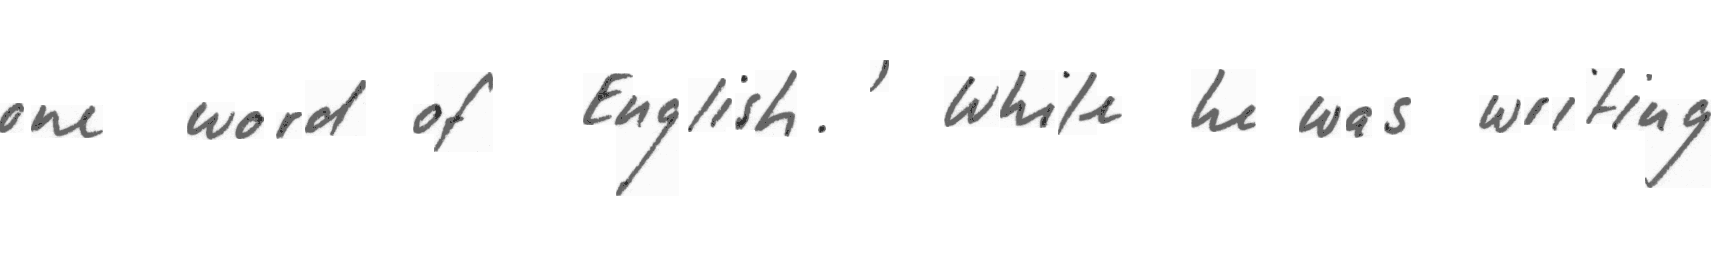 one word of English.' While he was writing